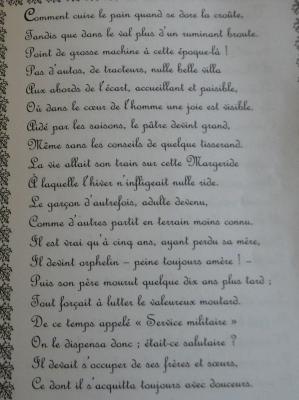 Comment cuire le pain quand se dore la croûte,
Tandis que dans le val plus d'un ruminant broute.
Point de grosse machine à cette époque-là !
Pas d'autos, de tracteurs, nulle belle villa
Aux abords de l'écart, accueillant et paisible,
Où dans le cœur de l'homme une joie est visible.
Aidé par les saisons, le pâtre devint grand,
Même sans les conseils de quelque tisserand.
La vie allait son train sur cette Margeride
À laquelle l'hiver n'infligeait nulle ride.
Le garçon d'autrefois, adulte devenu,
Comme d'autres partit en terrain moins connu.
Il est vrai qu'à cinq ans, ayant perdu sa mère,
Il devint orphelin – peine toujours amère ! –
Puis son père mourut quelque dix ans plus tard ;
Tout forçait à lutter le valeureux moutard.
De ce temps appelé « Service militaire »
On le dispensa donc ; était-ce salutaire ?
Il devait s'occuper de ses frères et sœurs,
Ce dont il s'acquitta toujours avec douceurs.